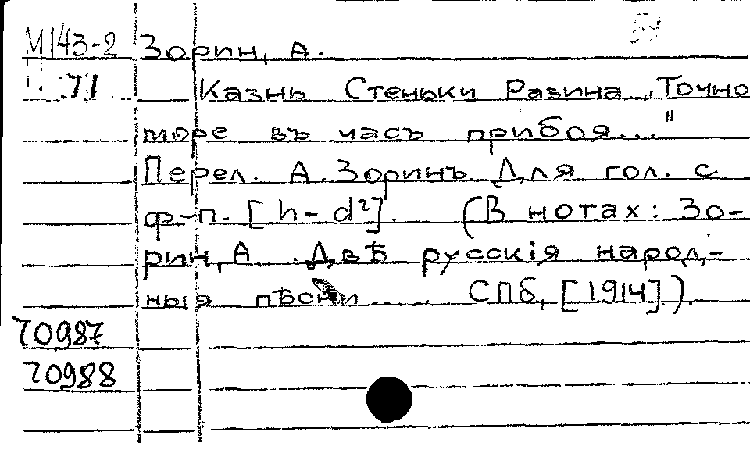 М143-2 Зорин, А.
71 Казнь Стеньки Разина „Точно
море въ часъ прибоя..."
Перел. А. Зоринъ. Для гол. с
ф-п. [h-d²]. (В нотах: Зо-
рин, А. Двѣ русскія народ-
ныя пѣсни..... СПб, [1914]).
70987
70988